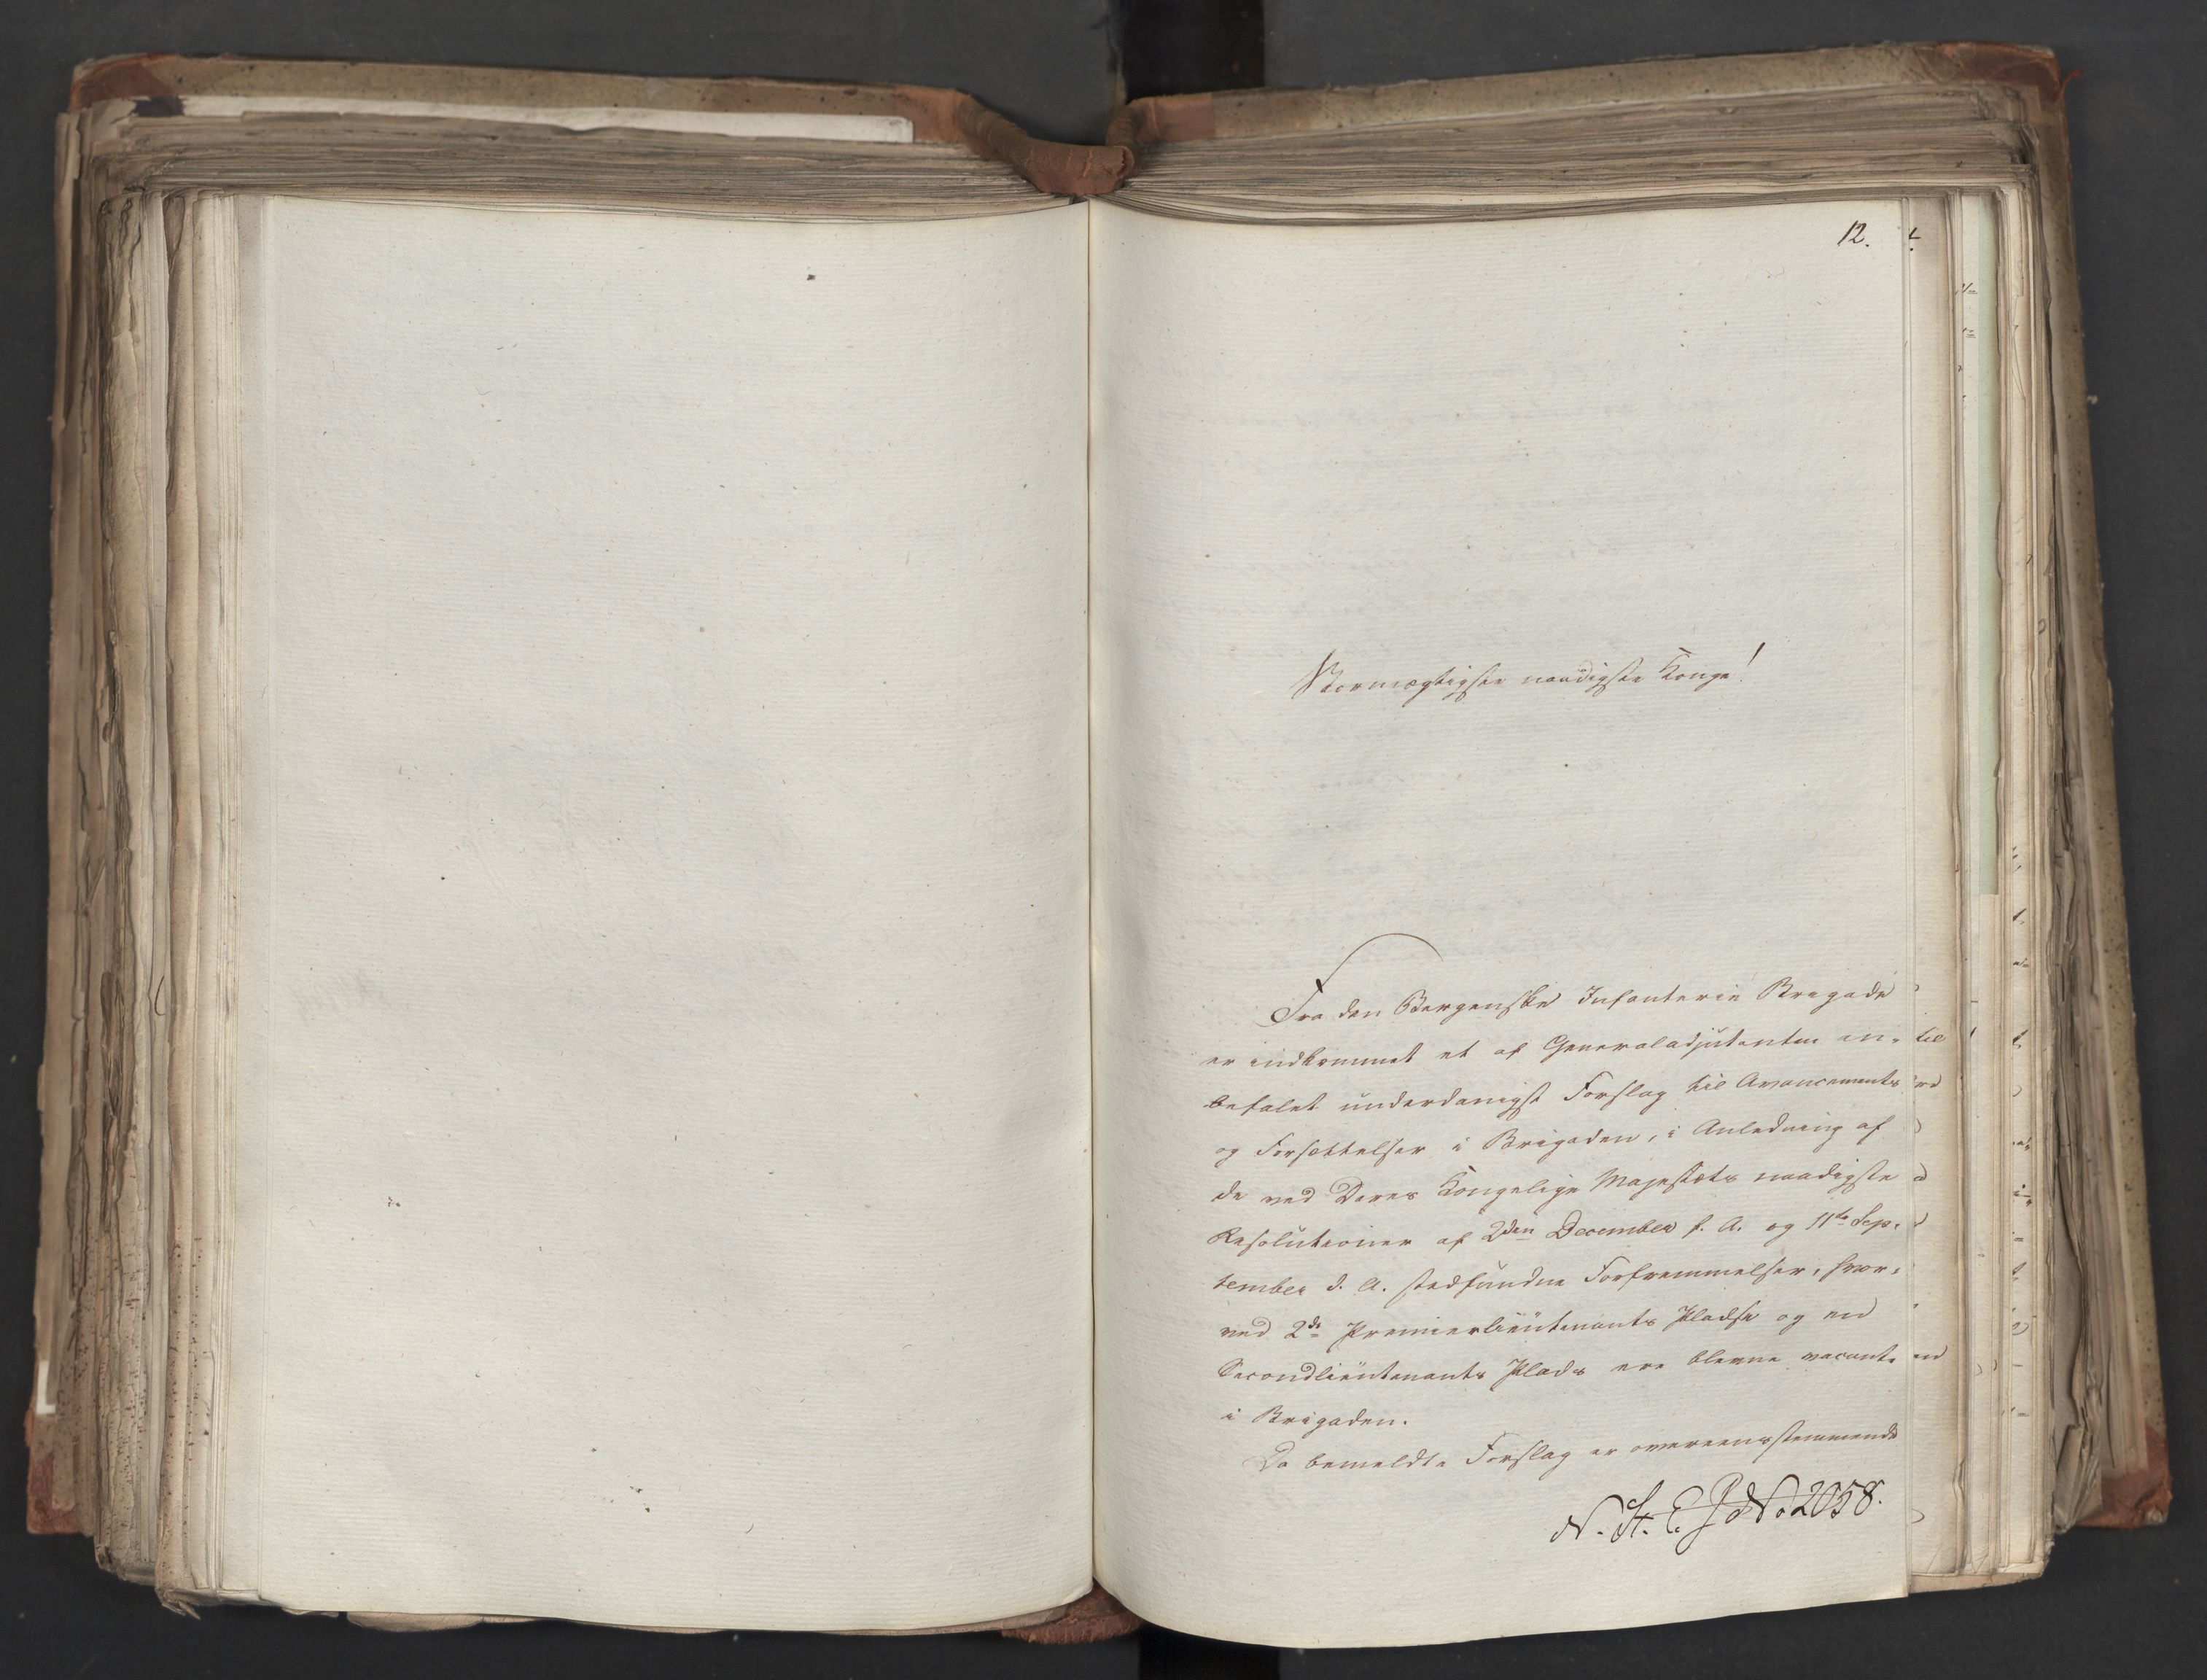 12.
Stormægtigste naadigste Konge!
Fra den Bergenske Infanterie Brigade
er indkommet et af Generaladjutanten an-
befalet underdanigst Forslag til Avancements
og Forsættelser i Brigaden, i Anledning af
de ved Deres Kongelige Majestæts naadigste
Resolutioner af 2den December f. A. og 11te Sep-
tember d. A. stedfundne Forfremmelser, hvor-
ved 2de Premierlieutenants Pladse og en
Secondlieutenants Plads ere blevne vacante
i Brigaden.
Da bemeldte Forslag er overeensstemmende
N. St. E. J. No. 2058.
til
en